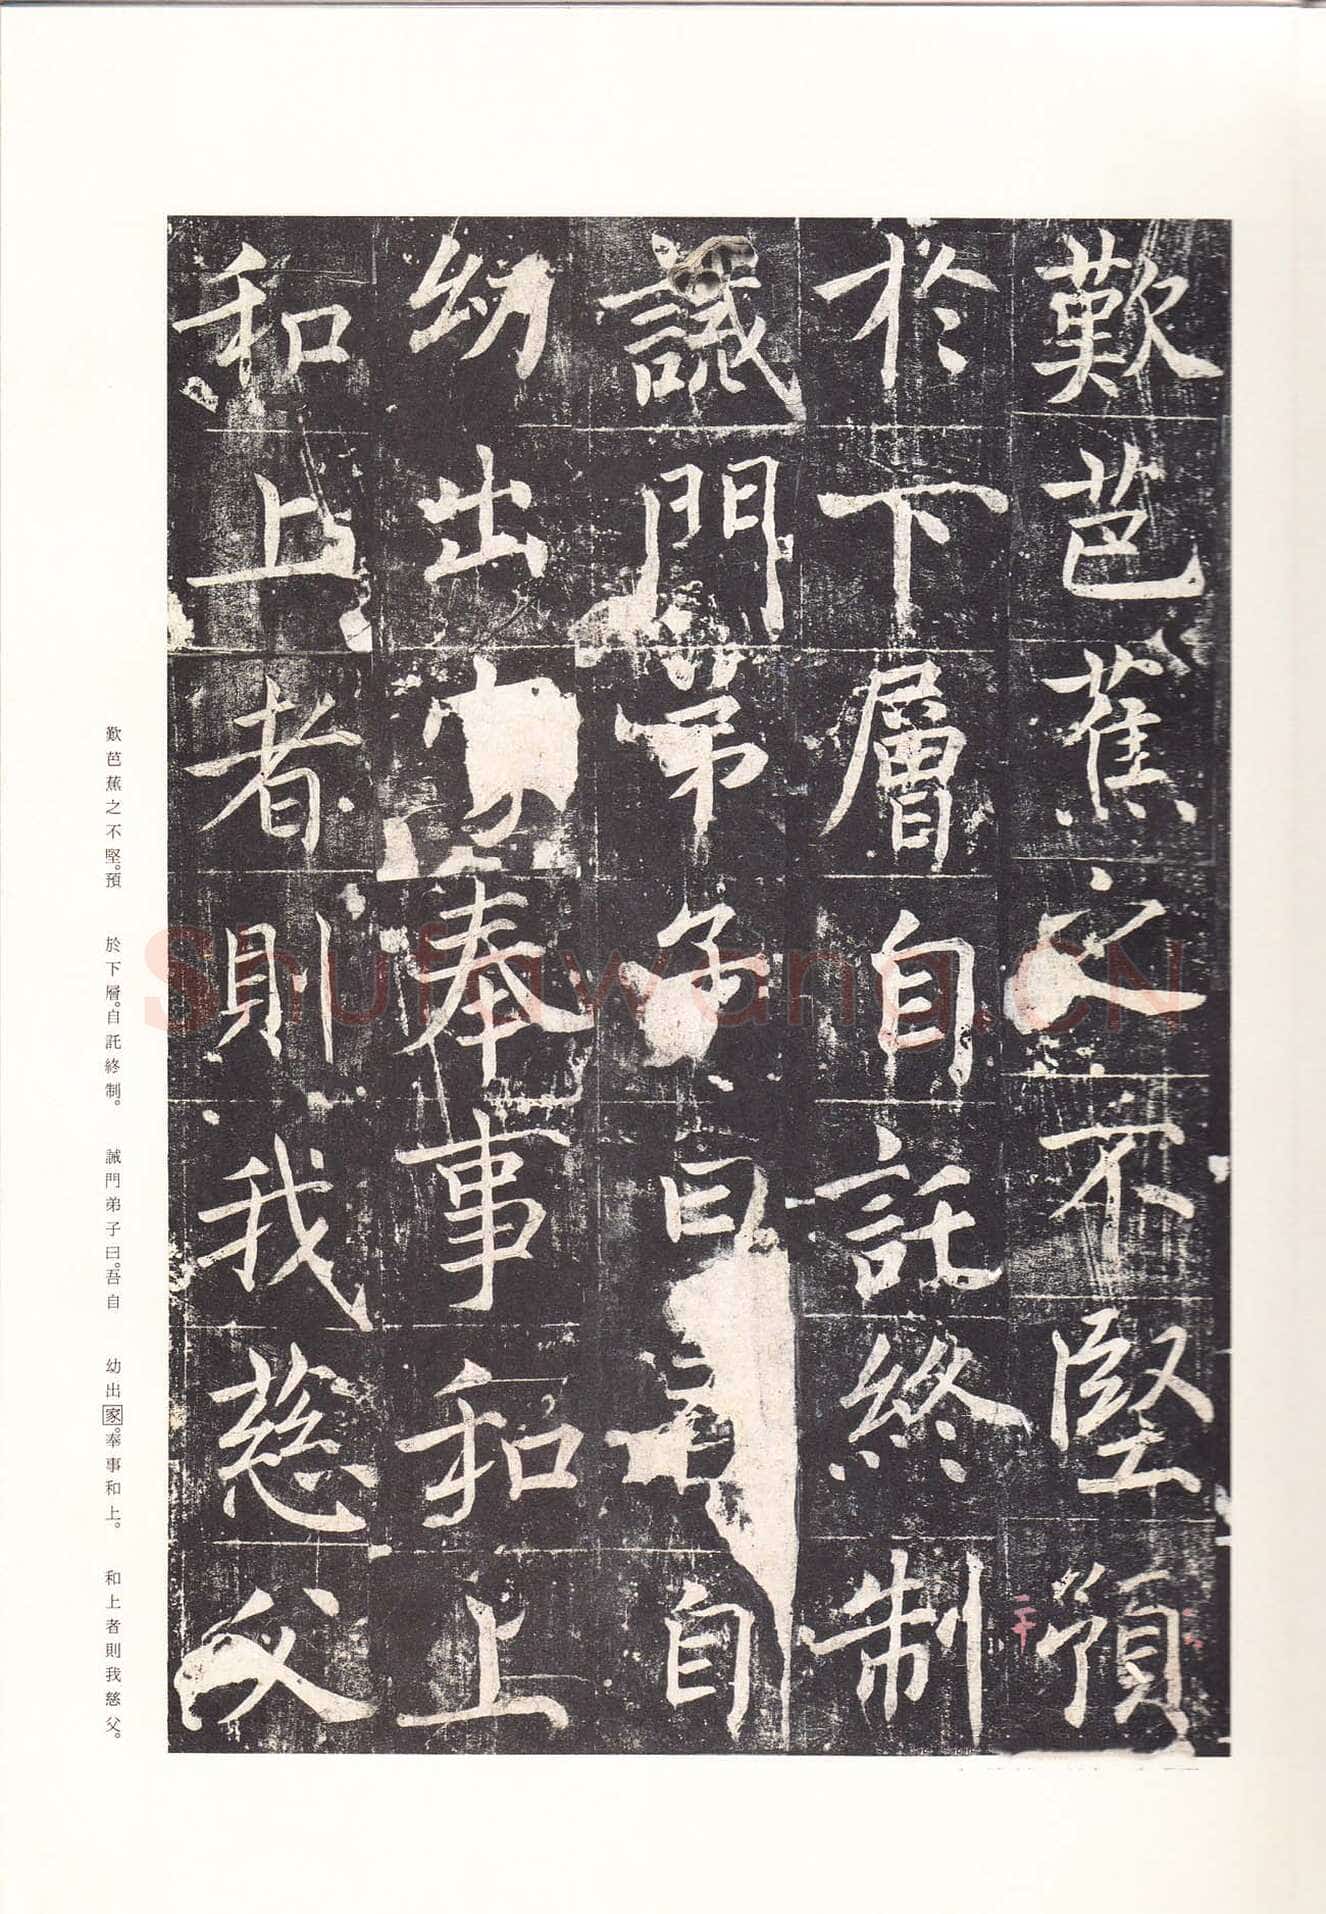 歎芭蕉之不堅預
於下層自託終制
誡門弟子曰吾自
幼出家奉事和上
和上者則我慈父
二十
歎芭蕉之不堅。預
於下層。自託終制。
誡門弟子曰。吾自
幼出家。奉事和上。
和上者則我慈父。
Shufawang.CN